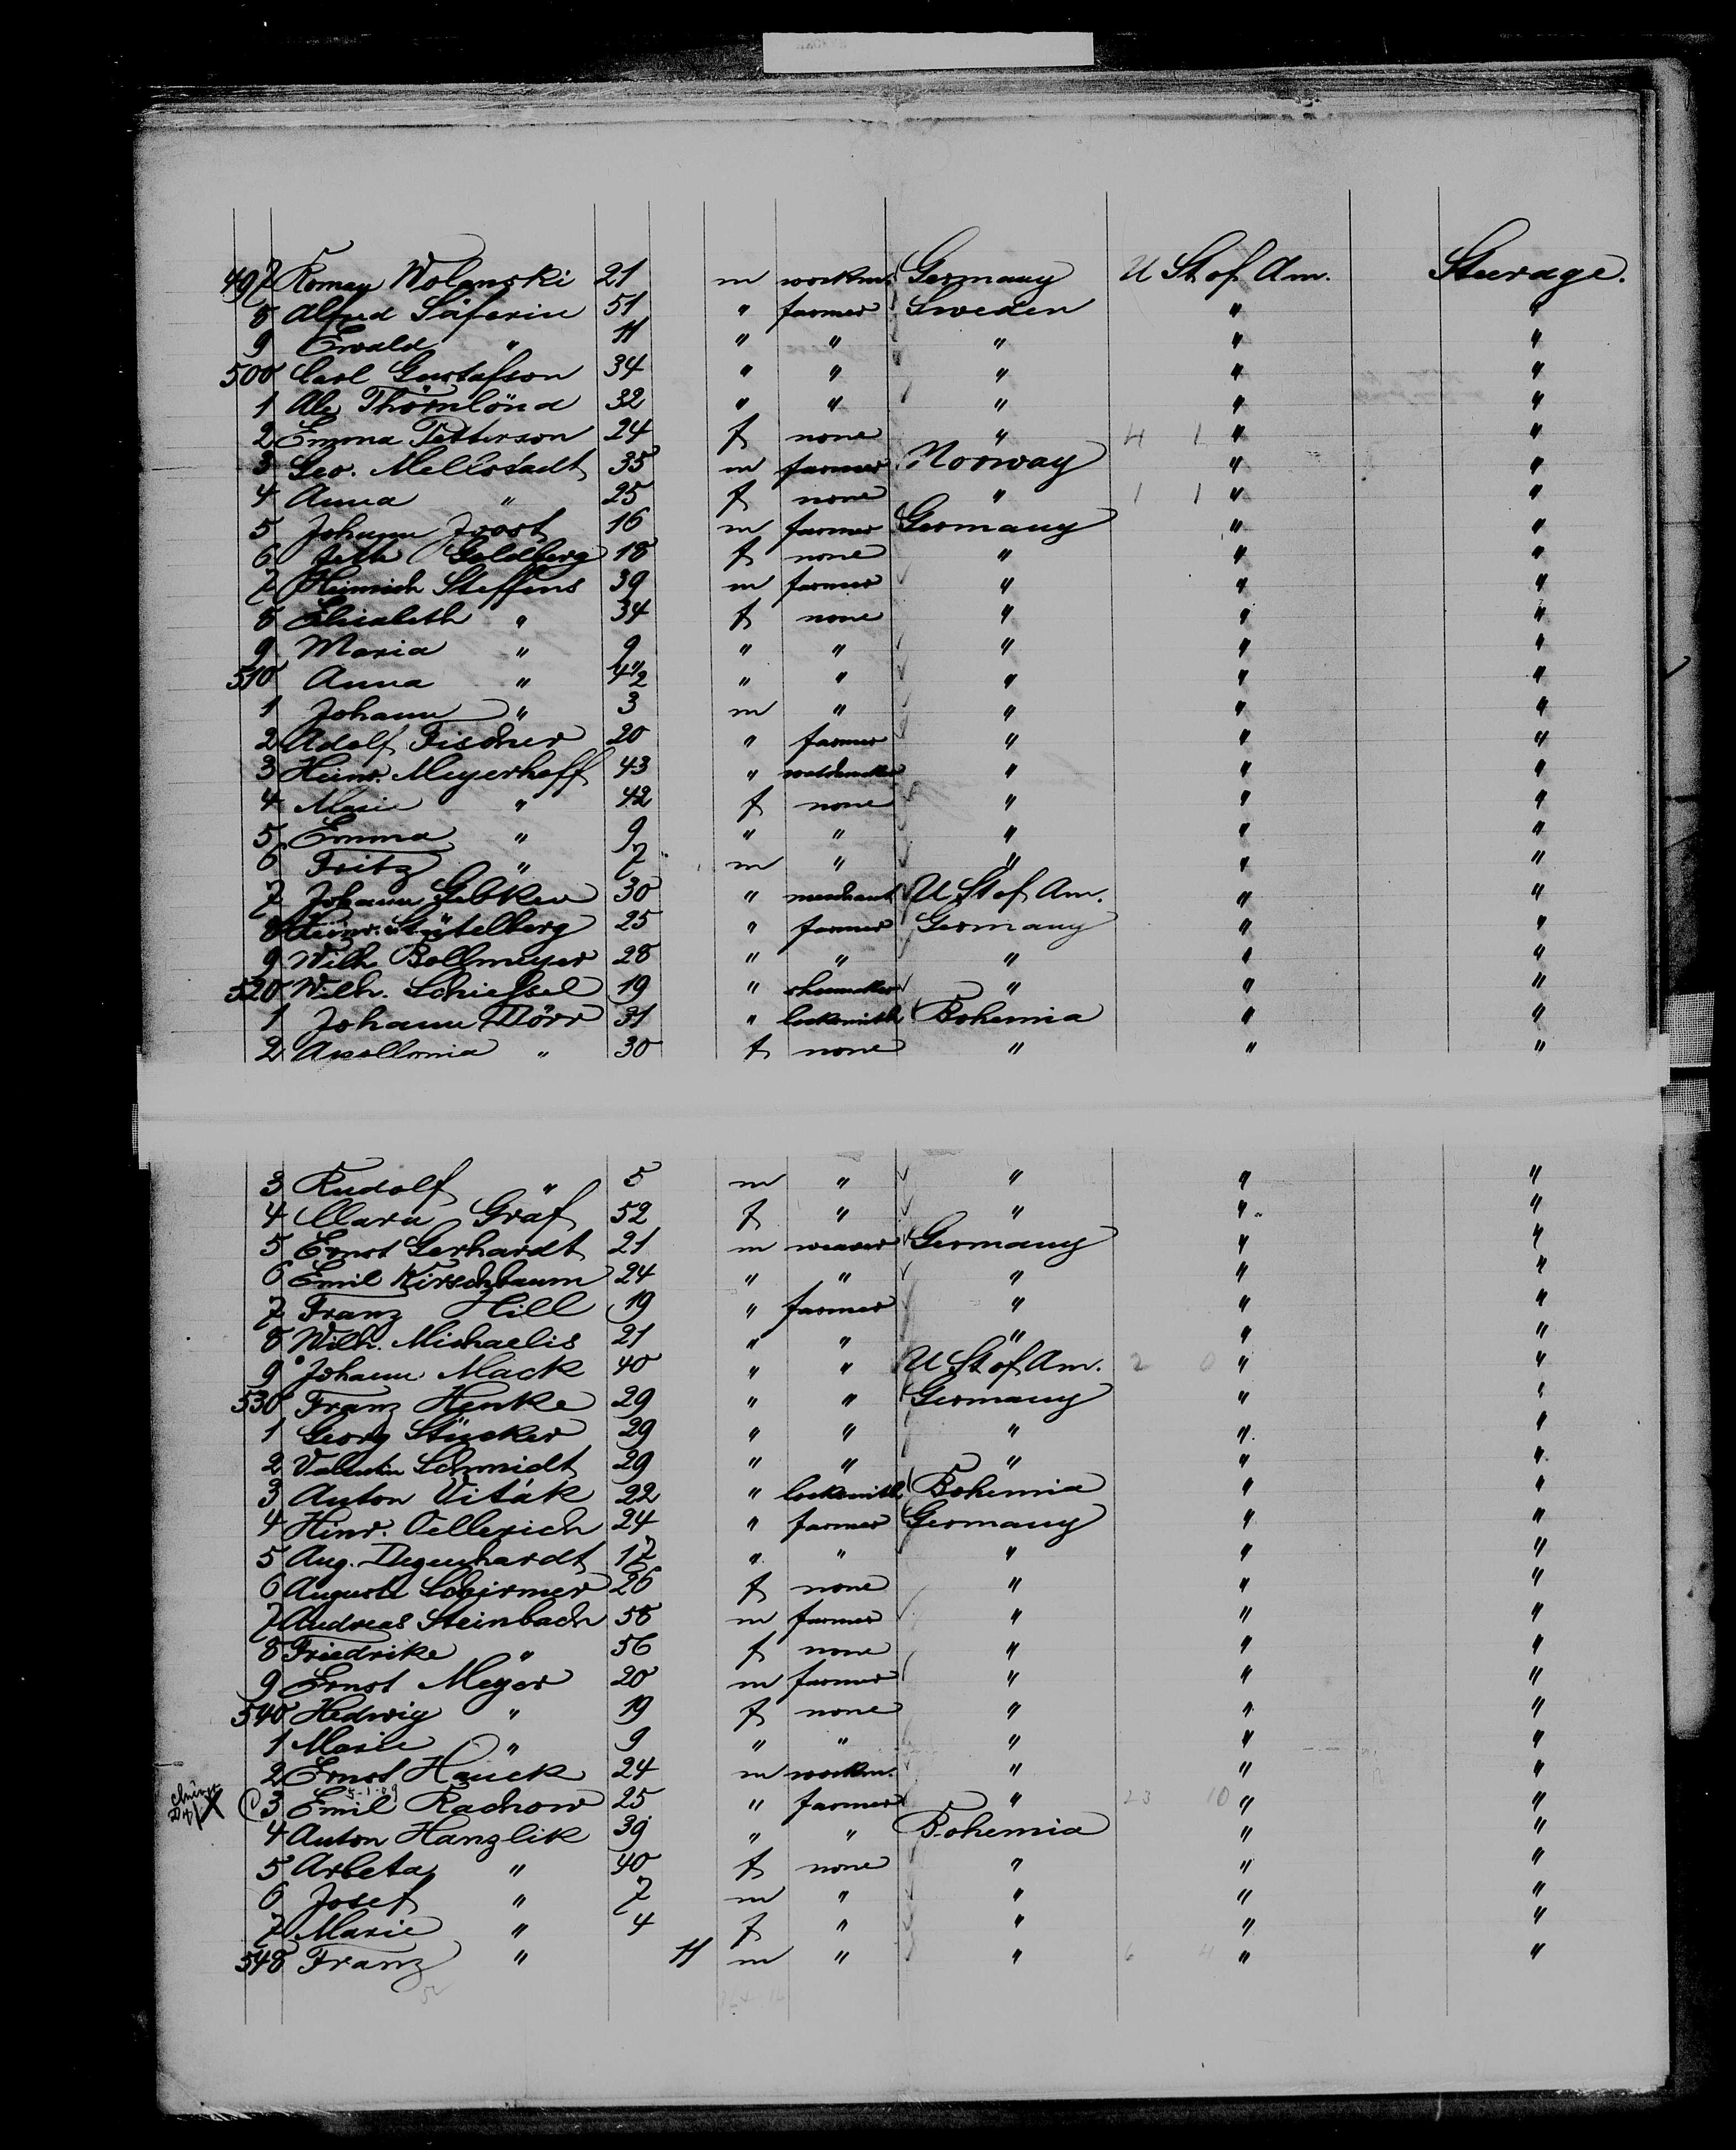 497 Roman Wolanski 21 m workm. Germany U St of Am. Steerage.
8 Alfred Säferin 51 " farmer Sweden " "
9 Ewald " 11 " " " " "
500 Carl Gustafson 34 " " " " "
1 Alex Thörnlönd 32 " " " " "
2 Emma Petterson 24 f none " 4 1 " "
3 Geo. Mellostadt 35 m farmer Norway " "
4 Anna " 25 f none " 1 1 " "
5 Johann Joost 16 m farmer Germany " "
6 Goldberg 18 f none " " "
7 Heinrich Steffens 39 m farmer " " "
8 Elisabeth " 34 f none " " "
9 Maria " 9 " " " " "
510 Anna " 4 1/2 " " " " "
1 Johann " 3 m " " " "
2 Adolf Fischer 20 " farmer " " "
3 Heinr. Meyerhoff 43 " watchmaker " " "
4 Marie " 42 f none " " "
5 Emma " 9 " " " " "
6 Fritz " 7 m " " " "
7 Johann Gebken 30 " merchant U St of Am. " "
8 Heinr. Gütelberg 25 " farmer Germany " "
9 Wilh. Bollmeyer 28 " " " " "
520 Wilh. Schiessel 19 " shoemaker " " "
1 Johann Dörr 31 " locksmith Bohemia " "
2 Apollonia " 30 f none " " "
3 Rudolf " 5 m " " " "
4 Clara Gräf 52 f " " " "
5 Ernst Gerhardt 21 m weaver Germany " "
6 Emil Kirschbaum 24 " " " " "
7 Franz Hill 19 " farmer " " "
8 Wilh. Michaelis 21 " " " " "
9 Johann Mack 40 " " U St of Am. 2 0 " "
530 Franz Henke 29 " " Germany " "
1 Georg Stücker 29 " " " " "
2 Valentin Schmidt 29 " " " " "
3 Anton Viták 22 " locksmith Bohemia " "
4 Hinr. Oellerich 24 " farmer Germany " "
5 Aug. Degenhardt 17 " " " " "
6 Auguste Schirmer 26 f none " " "
7 Andreas Steinbach 58 m farmer " " "
8 Friedrike " 56 f none " " "
9 Ernst Meyer 20 m farmer " " "
540 Hedwig " 19 f none " " "
1 Marie " 9 " " " " "
2 Ernst Hauck 24 m workm. " " "
5-1-09
X 3 Emil Rachow 25 " farmer " 23 10 " "
4 Anton Hanzlik 39 " " Bohemia " "
5 Arbeta " 40 f none " " "
6 Josef " 7 m " " " "
7 Marie " 4 f " " " "
548 Franz " 11 m " " 6 4 " "